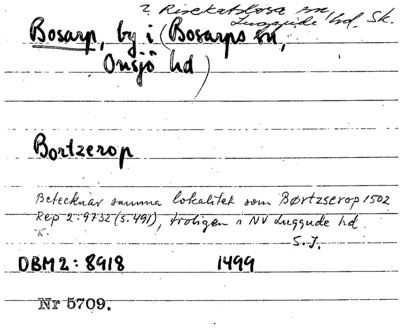 ? Risekatslösa sn
Luggude hd. Sk.
Bosarp, by i (Bosarps sn,
Onsjö hd)
Bortzerop
Betecknar samma lokalitet som Børtzserop 1502
Rep 2:9732 (s. 491), troligen i NV Luggude hd
K.
S.J.
DBM2: 8918 1499
Nr 5709.